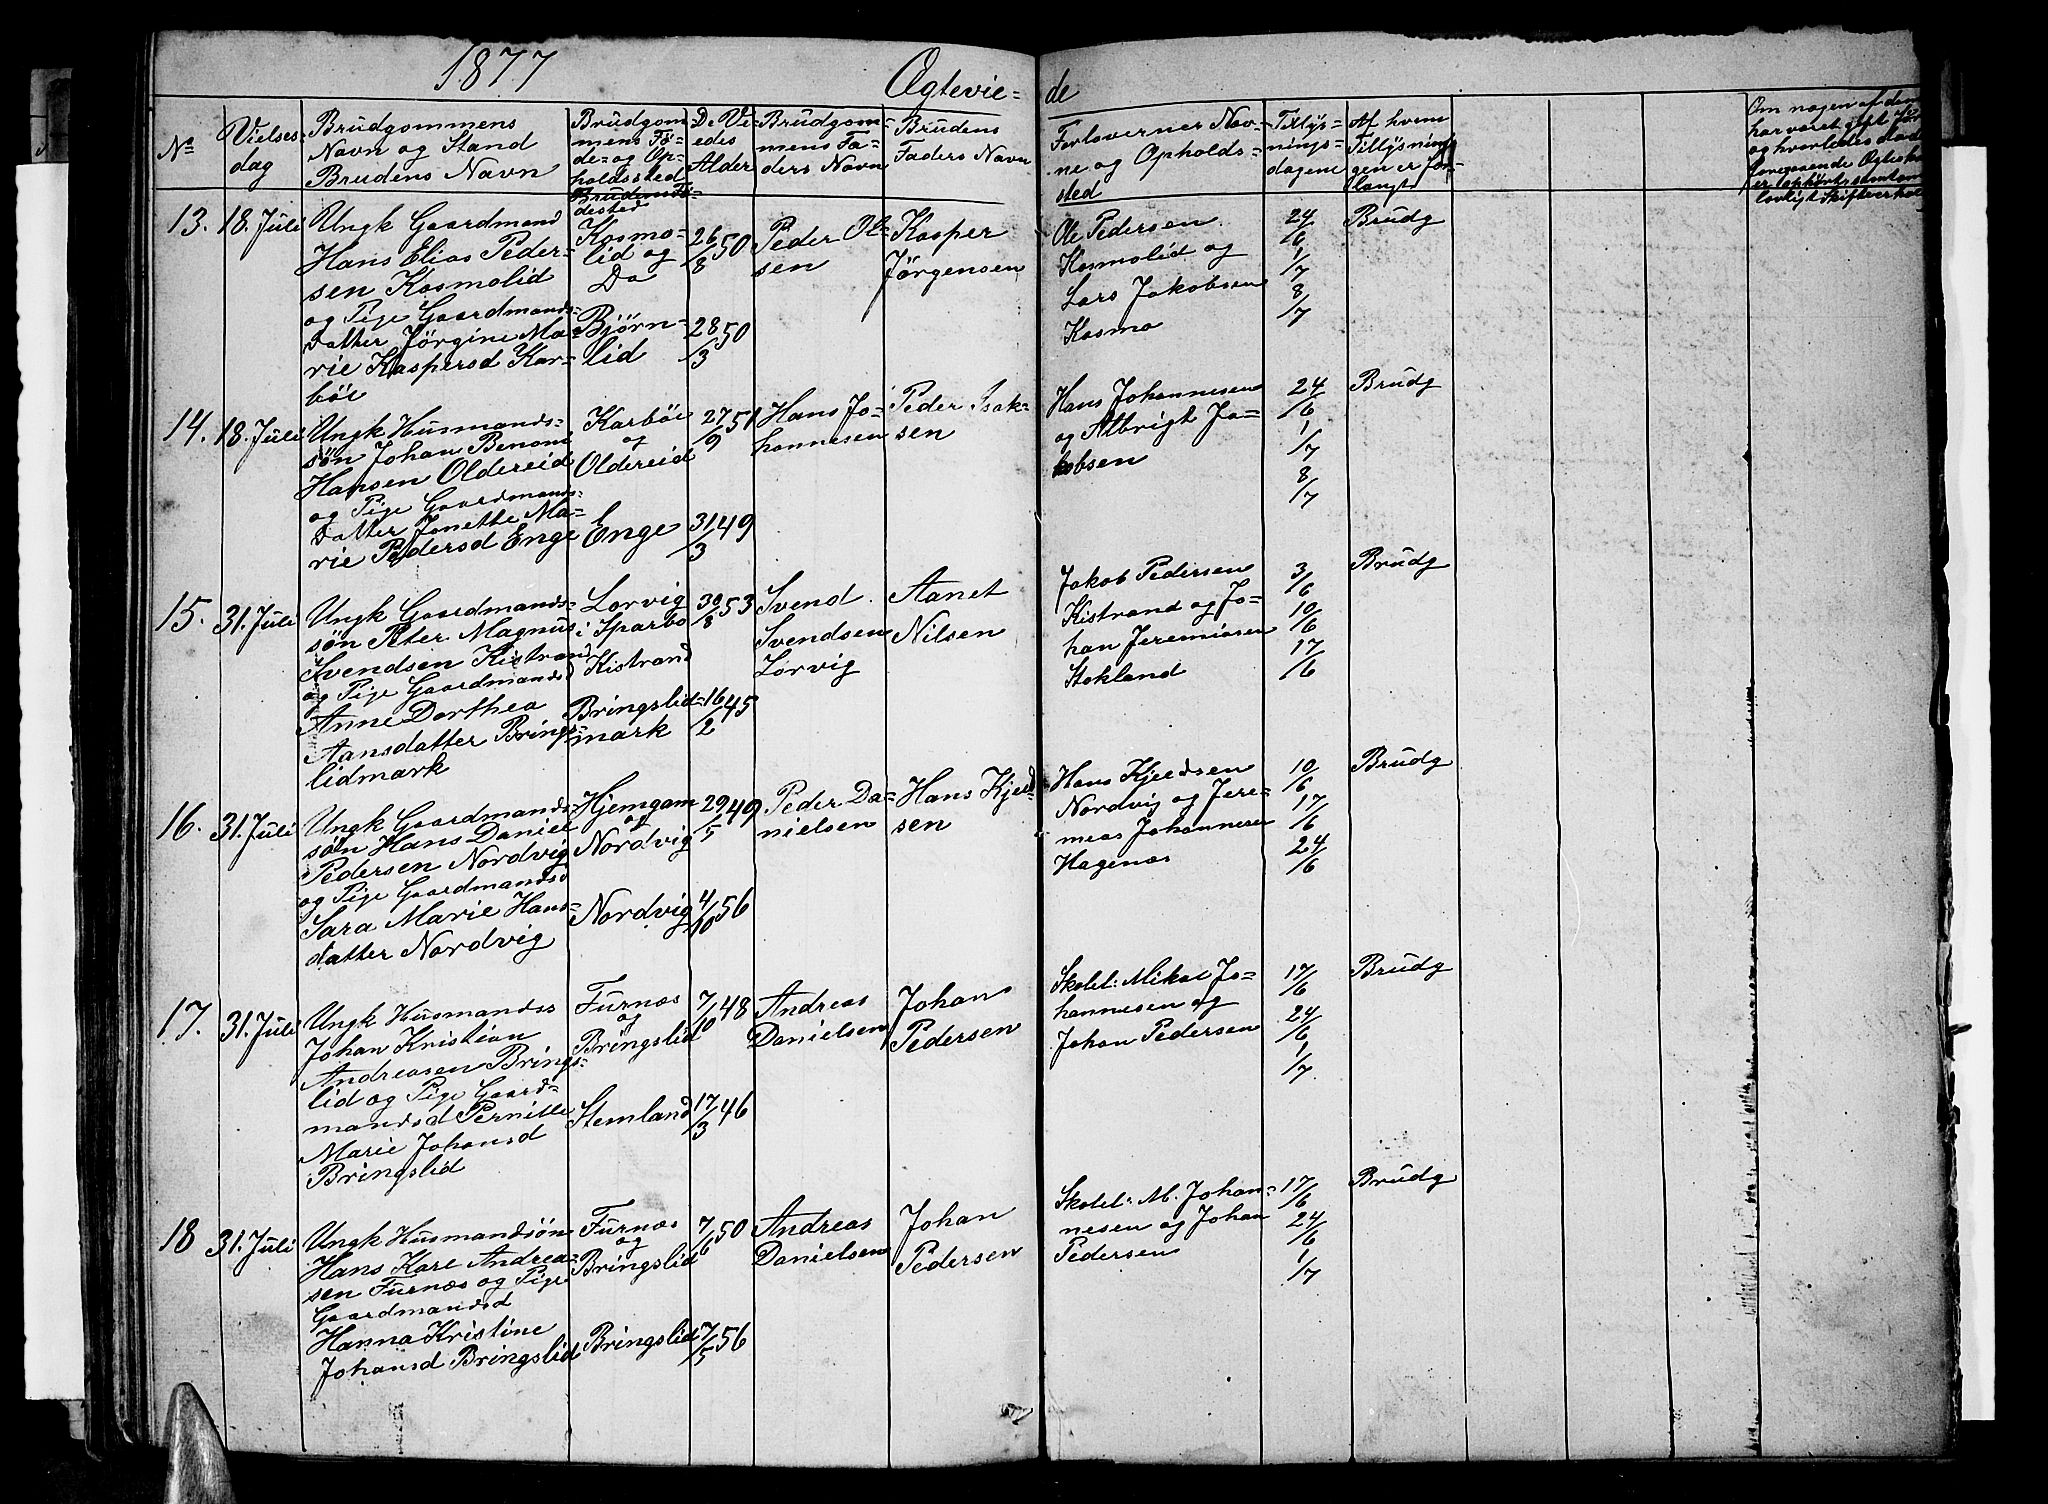 1877
Ægtevie=
de
No
Vielses-
dag
Brudgommens
Navn og Stand
Brudens Navn
Brudgom-
mens Fø-
de- og Op-
holdssted
Brudens Fø-
dested
De Vi-
edes
Alder
Brudgom-
mens Fa-
ders Navn
Brudens
Faders Navn
Forlovernes Nav-
ne og Opholds-
sted
Tillys-
nings-
dagene
Af hvem
Tillysnin-
gen er for-
langt
Om nogen af dem
har været gift før
og hvorledes det
foregaaende Ægtesk.
er ophørt, samt om
lovligt Skifte er hol
13.
18. Juli
Ungk Gaardmand
Hans Elias Peder-
sen Kosmolid
og Pige Gaardmands-
datter Jørgine Ma-
rie Kaspersd Kar-
bøl
Kosmo-
lid og
Do
Bjørn-
lid
26/8 50
28/3 50
Peder Ol-
sen
Kasper
Jørgensen
Ole Pedersen
Kosmolid og
Lars Jakobsen
Kosmo
24/6
1/7
8/7
Brudg
14.
18. Juli
Ungk Husmands-
søn Johan Benoni
Hansen Oldereid
og Pige Gaardmands-
datter Jonette Ma-
rie Pedersd Enge
Karbøl
og
Oldereid
Enge
27/9 51
31/3 49
Hans Jo-
hannesen
Peder Isak-
sen
Hans Johannesen
og Albrigt Ja-
kobsen
24/6
1/7
8/7
Brudg
15.
31. Juli
Ungk Gaardmands-
søn Peter Magnus
Svendsen Kistrand
og Pige Gaardmandsd
Anne Dorthea
Aansdatter Brings-
lidmark
Lorvig
i Sparbo
Kistrand
Bringslid-
mark
30/8 53
16/2 45
Svend
Svendsen
Lorvig
Aanet
Nilsen
Jakob Pedersen
Kistrand og Jo-
han Jeremiasen
Stokland
3/6
10/6
17/6
Brudg
16.
31. Juli
Ungk Gaardmands-
søn Hans Daniel
Pedersen Nordvig
og Pige Gaardmandsd
Sara Marie Hans-
datter Nordvig
Hjemgam
og
Nordvig
Nordvig
29/5 49
4/10 56
Peder Da-
nielsen
Hans Kjeld-
sen
Hans Kjeldsen
Nordvig og Jere-
mias Johannesen
Hagenæs
10/6
17/6
24/6
Brudg
17.
31. Juli
Ungk Husmandss
Johan Kristian
Andreasen Brings-
lid og Pige Gaard-
mandsd Pernille
Marie Johansd
Bringslid
Furnæs
og
Bringslid
Stemland
7/10 48
17/3 46
Andreas
Danielsen
Johan
Pedersen
Skolel: Mikal Jo-
hannesen og
Johan Pedersen
17/6
24/6
1/7
Brudg
18
31. Juli
Ungk Husmandsøn
Hans Kare Andrea-
sen Furnæs og Pige
Gaardmandsd
Hanna Kristine
Johansd Bringslid
Furnæs
og
Bringslid
Bringslid
7/6 50
7/5 56
Andreas
Danielsen
Johan
Pedersen
Skolel: M. Johan-
nesen og Johan
Pedersen
17/6
24/6
1/7
Brudg